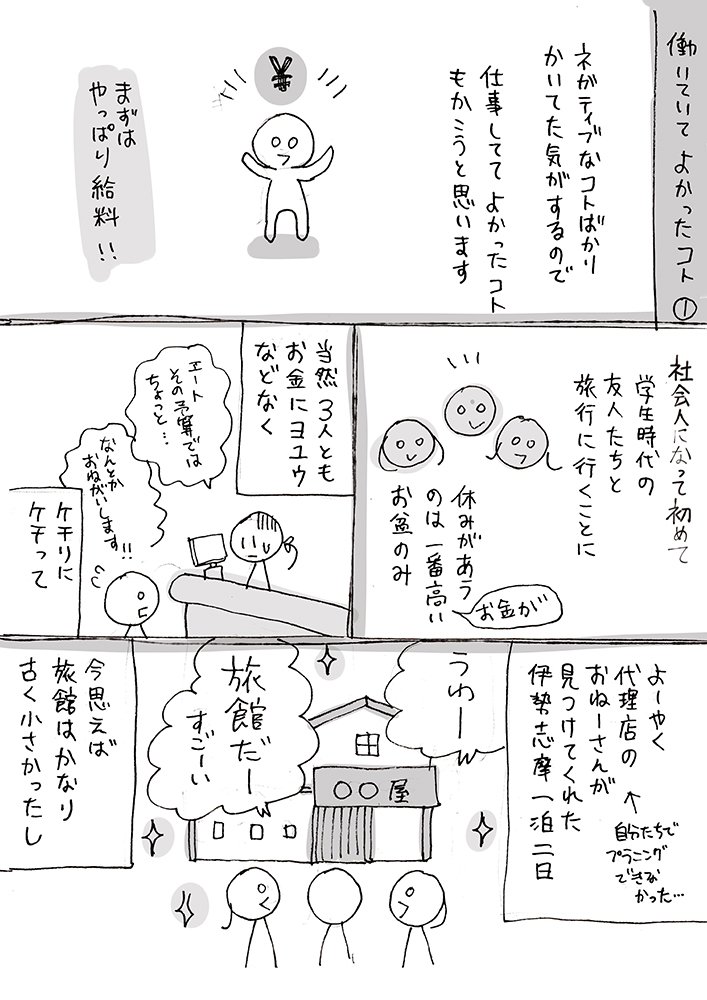 働いていて よかったコト①
ネガティブなコトばかり
かいてた気がするので
仕事してて よかったコト
もかこうと思います
¥
まずは
やっぱり 給料!!
社会人になって初めて
学生時代の
友人たちと
旅行に行くことに
休みがあう
のは一番高い
お盆のみ
お金が
当然 3人とも
お金にヨユウ
などなく
エート
その予算では
ちょっと…
なんとか
おねがいします!!
ケチりに
ケチって
よーやく
代理店の
おねーさんが
見つけてくれた
伊勢志摩一泊二日
自分たちで
プランニング
できな
かった…
うわー
旅館だー
すごーい
○○屋
今思えば
旅館はかなり
古く小さかったし